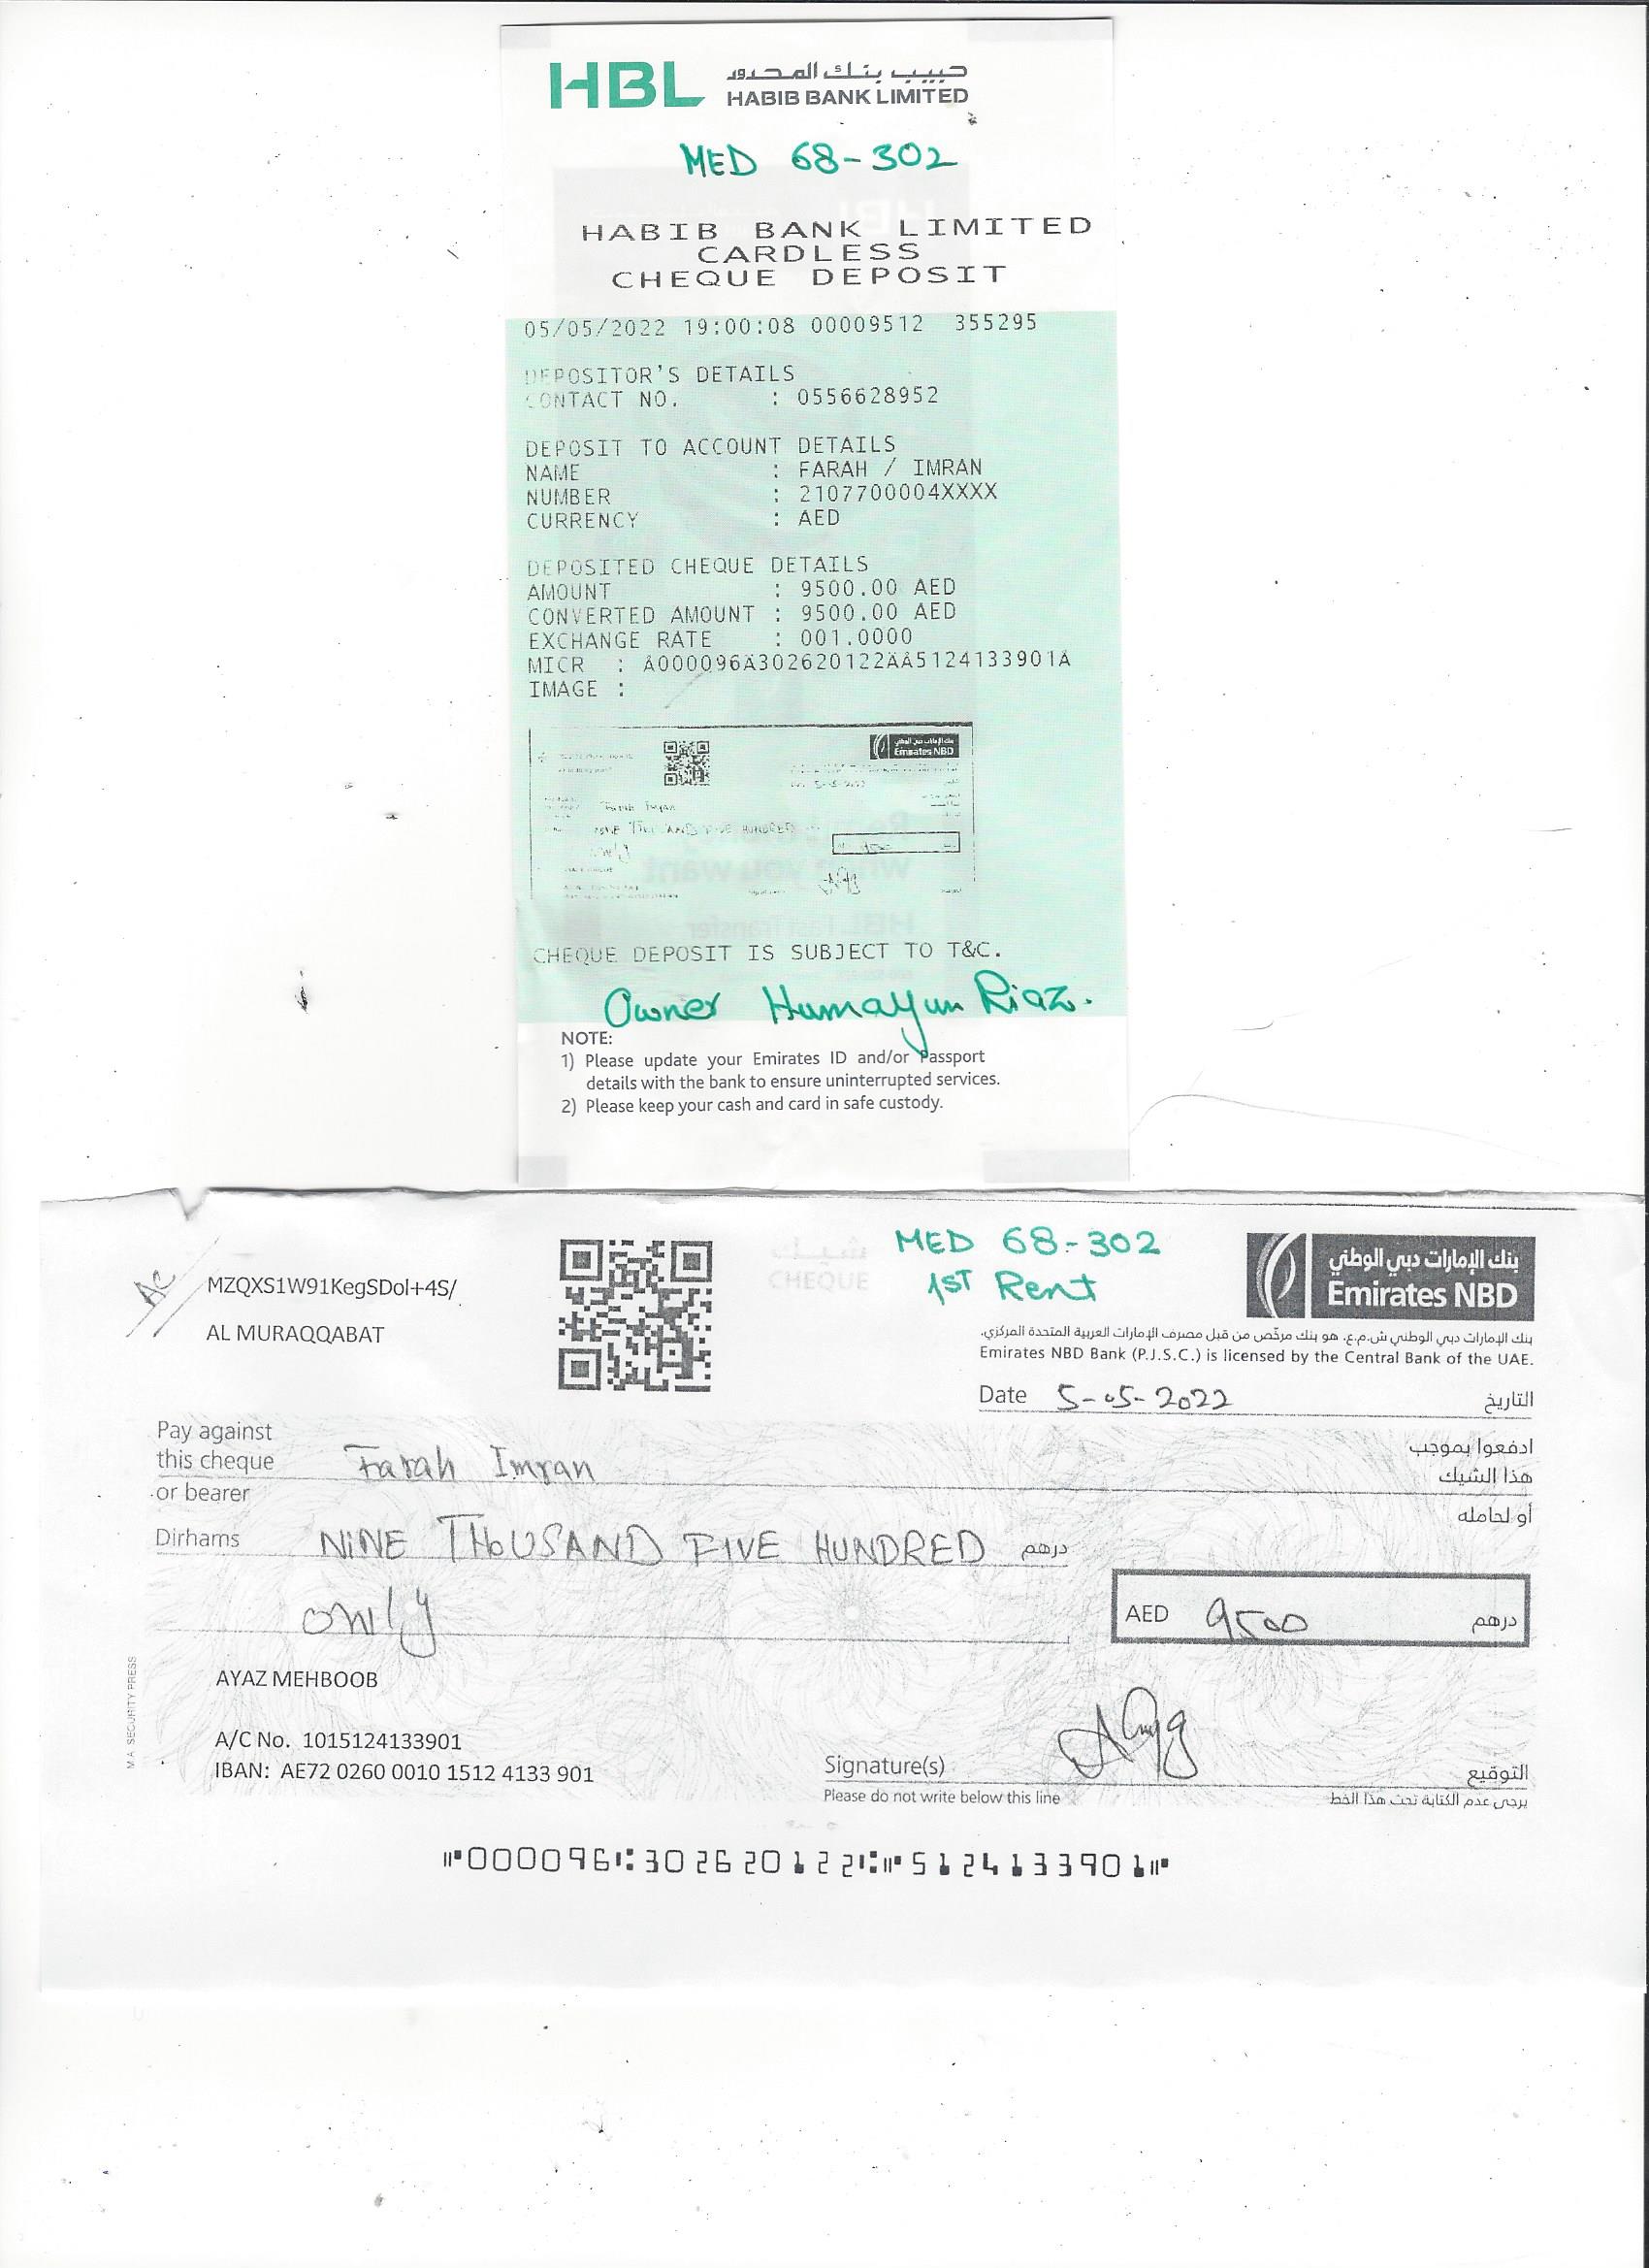 HBL حبيب بنك المحدود
HABIB BANK LIMITED
MED 68-302
HABIB BANK LIMITED
CARDLESS
CHEQUE DEPOSIT
05/05/2022 19:00:08 00009512 355295
DEPOSITOR'S DETAILS
CONTACT NO. : 0556628952
DEPOSIT TO ACCOUNT DETAILS
NAME : FARAH / IMRAN
NUMBER : 2107700004XXXX
CURRENCY : AED
DEPOSITED CHEQUE DETAILS
AMOUNT : 9500.00 AED
CONVERTED AMOUNT : 9500.00 AED
EXCHANGE RATE : 001.0000
MICR : A000096A302620122AA5124133901A
IMAGE :
بنك الإمارات دبي الوطني
Emirates NBD
5-05-2022
Farah Imran
HUNDRED
only
CHEQUE DEPOSIT IS SUBJECT TO T&C.
Owner Humayun Riaz.
NOTE:
1) Please update your Emirates ID and/or Passport
details with the bank to ensure uninterrupted services.
2) Please keep your cash and card in safe custody.
MED 68-302
1ST Rent
شيك
CHEQUE
بنك الإمارات دبي الوطني
Emirates NBD
Ac
MZQXS1W91KegSDol+4S/
AL MURAQQABAT
بنك الإمارات دبي الوطني ش.م.ع. هو بنك مرخّص من قبل مصرف الإمارات العربية المتحدة المركزي.
Emirates NBD Bank (P.J.S.C.) is licensed by the Central Bank of the UAE.
Date 5-05-2022 التاريخ
Pay against ادفعوا بموجب
this cheque Farah Imran هذا الشيك
or bearer أو لحامله
Dirhams NINE THOUSAND FIVE HUNDRED درهم
only
AED 9500 درهم
AYAZ MEHBOOB
A/C No. 1015124133901
IBAN: AE72 0260 0010 1512 4133 901
Signature(s) التوقيع
Please do not write below this line يرجى عدم الكتابة تحت هذا الخط
M.A. SECURITY PRESS
⑈000096⑆302620122⑆⑈5124133901⑈